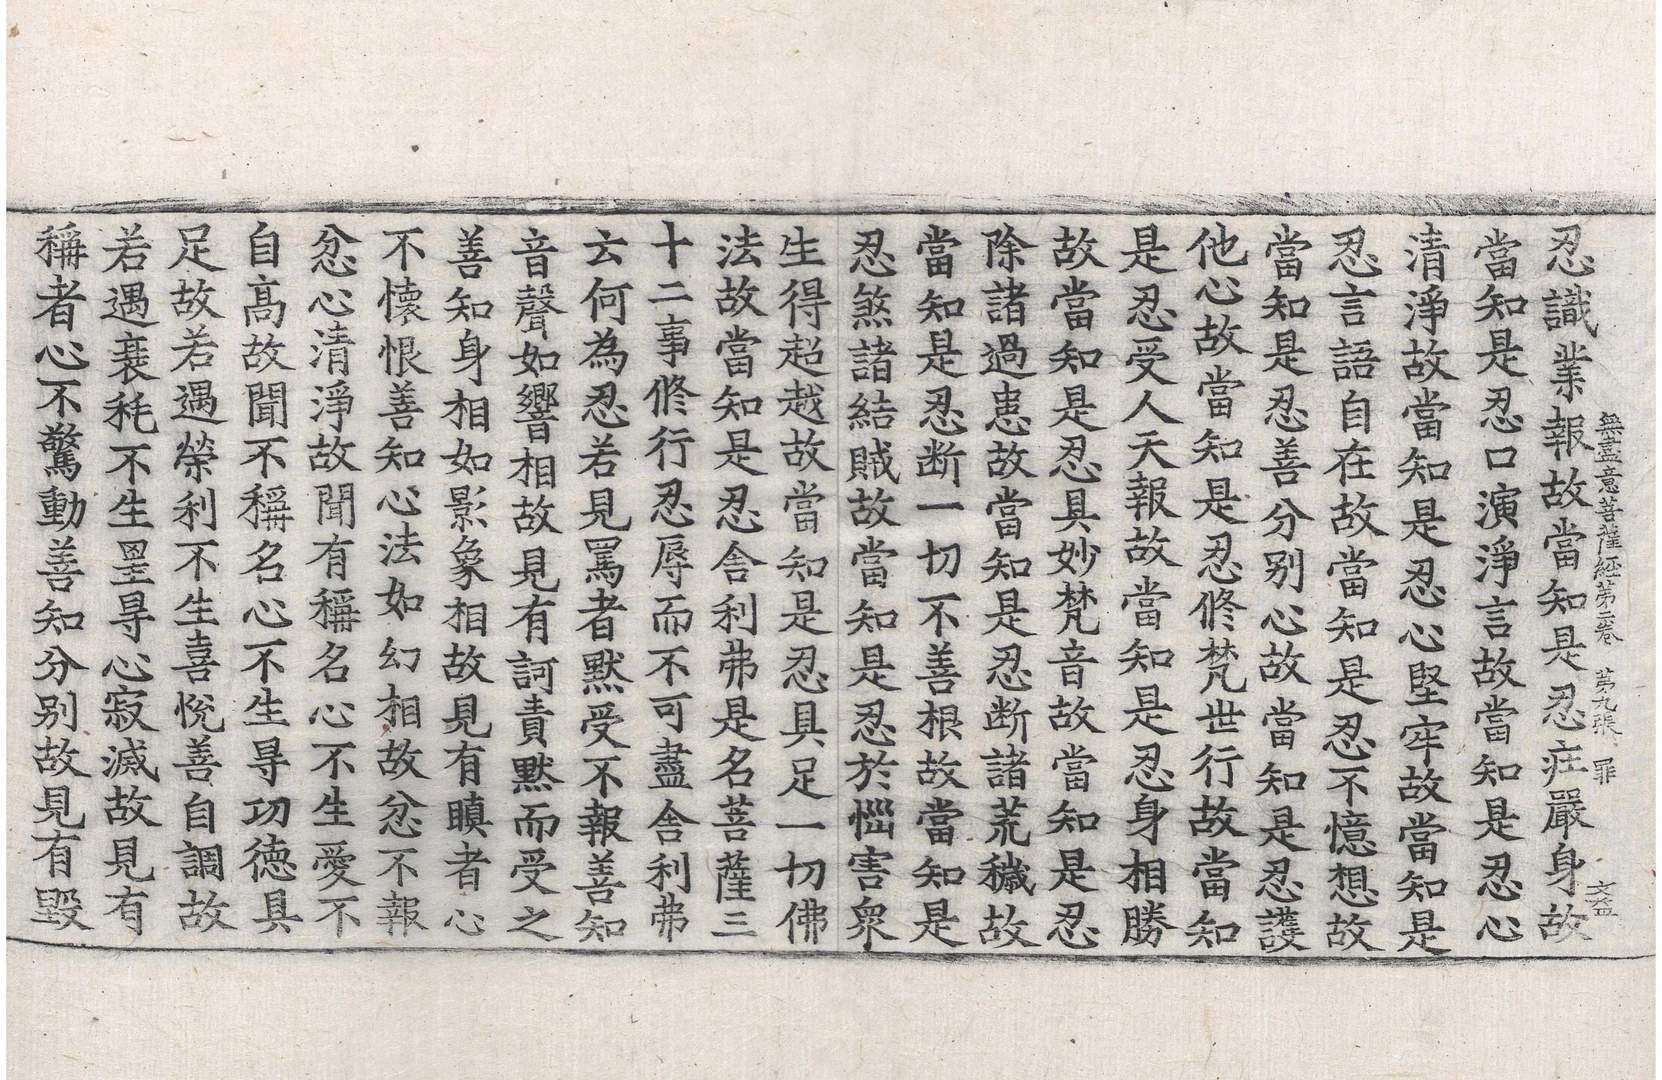 無盡意菩薩經第二卷 第九張 罪 文益
忍識業報故當知是忍疘嚴身故
當知是忍口演淨言故當知是忍心
清淨故當知是忍心堅牢故當知是
忍言語自在故當知是忍不憶想故
當知是忍善分別心故當知是忍護
他心故當知是忍修梵世行故當知
是忍受人天報故當知是忍身相勝
故當知是忍具妙梵音故當知是忍
除諸過患故當知是忍断諸荒穢故
當知是忍断一切不善根故當知是
忍煞諸結賊故當知是忍於惱害衆
生得超越故當知是忍具足一切佛
法故當知是忍舍利弗是名菩薩三
十二事修行忍辱而不可盡舍利弗
云何為忍若見罵者黙受不報善知
音聲如響相故見有訶責黙而受之
善知身相如影象相故見有瞋者心
不懷恨善知心法如幻相故忿不報
忿心清淨故聞有稱名心不生愛不
自高故聞不稱名心不生㝵功德具
足故若遇榮利不生喜悅善自調故
若遇衰秏不生罣㝵心寂滅故見有
稱者心不驚動善知分別故見有毀